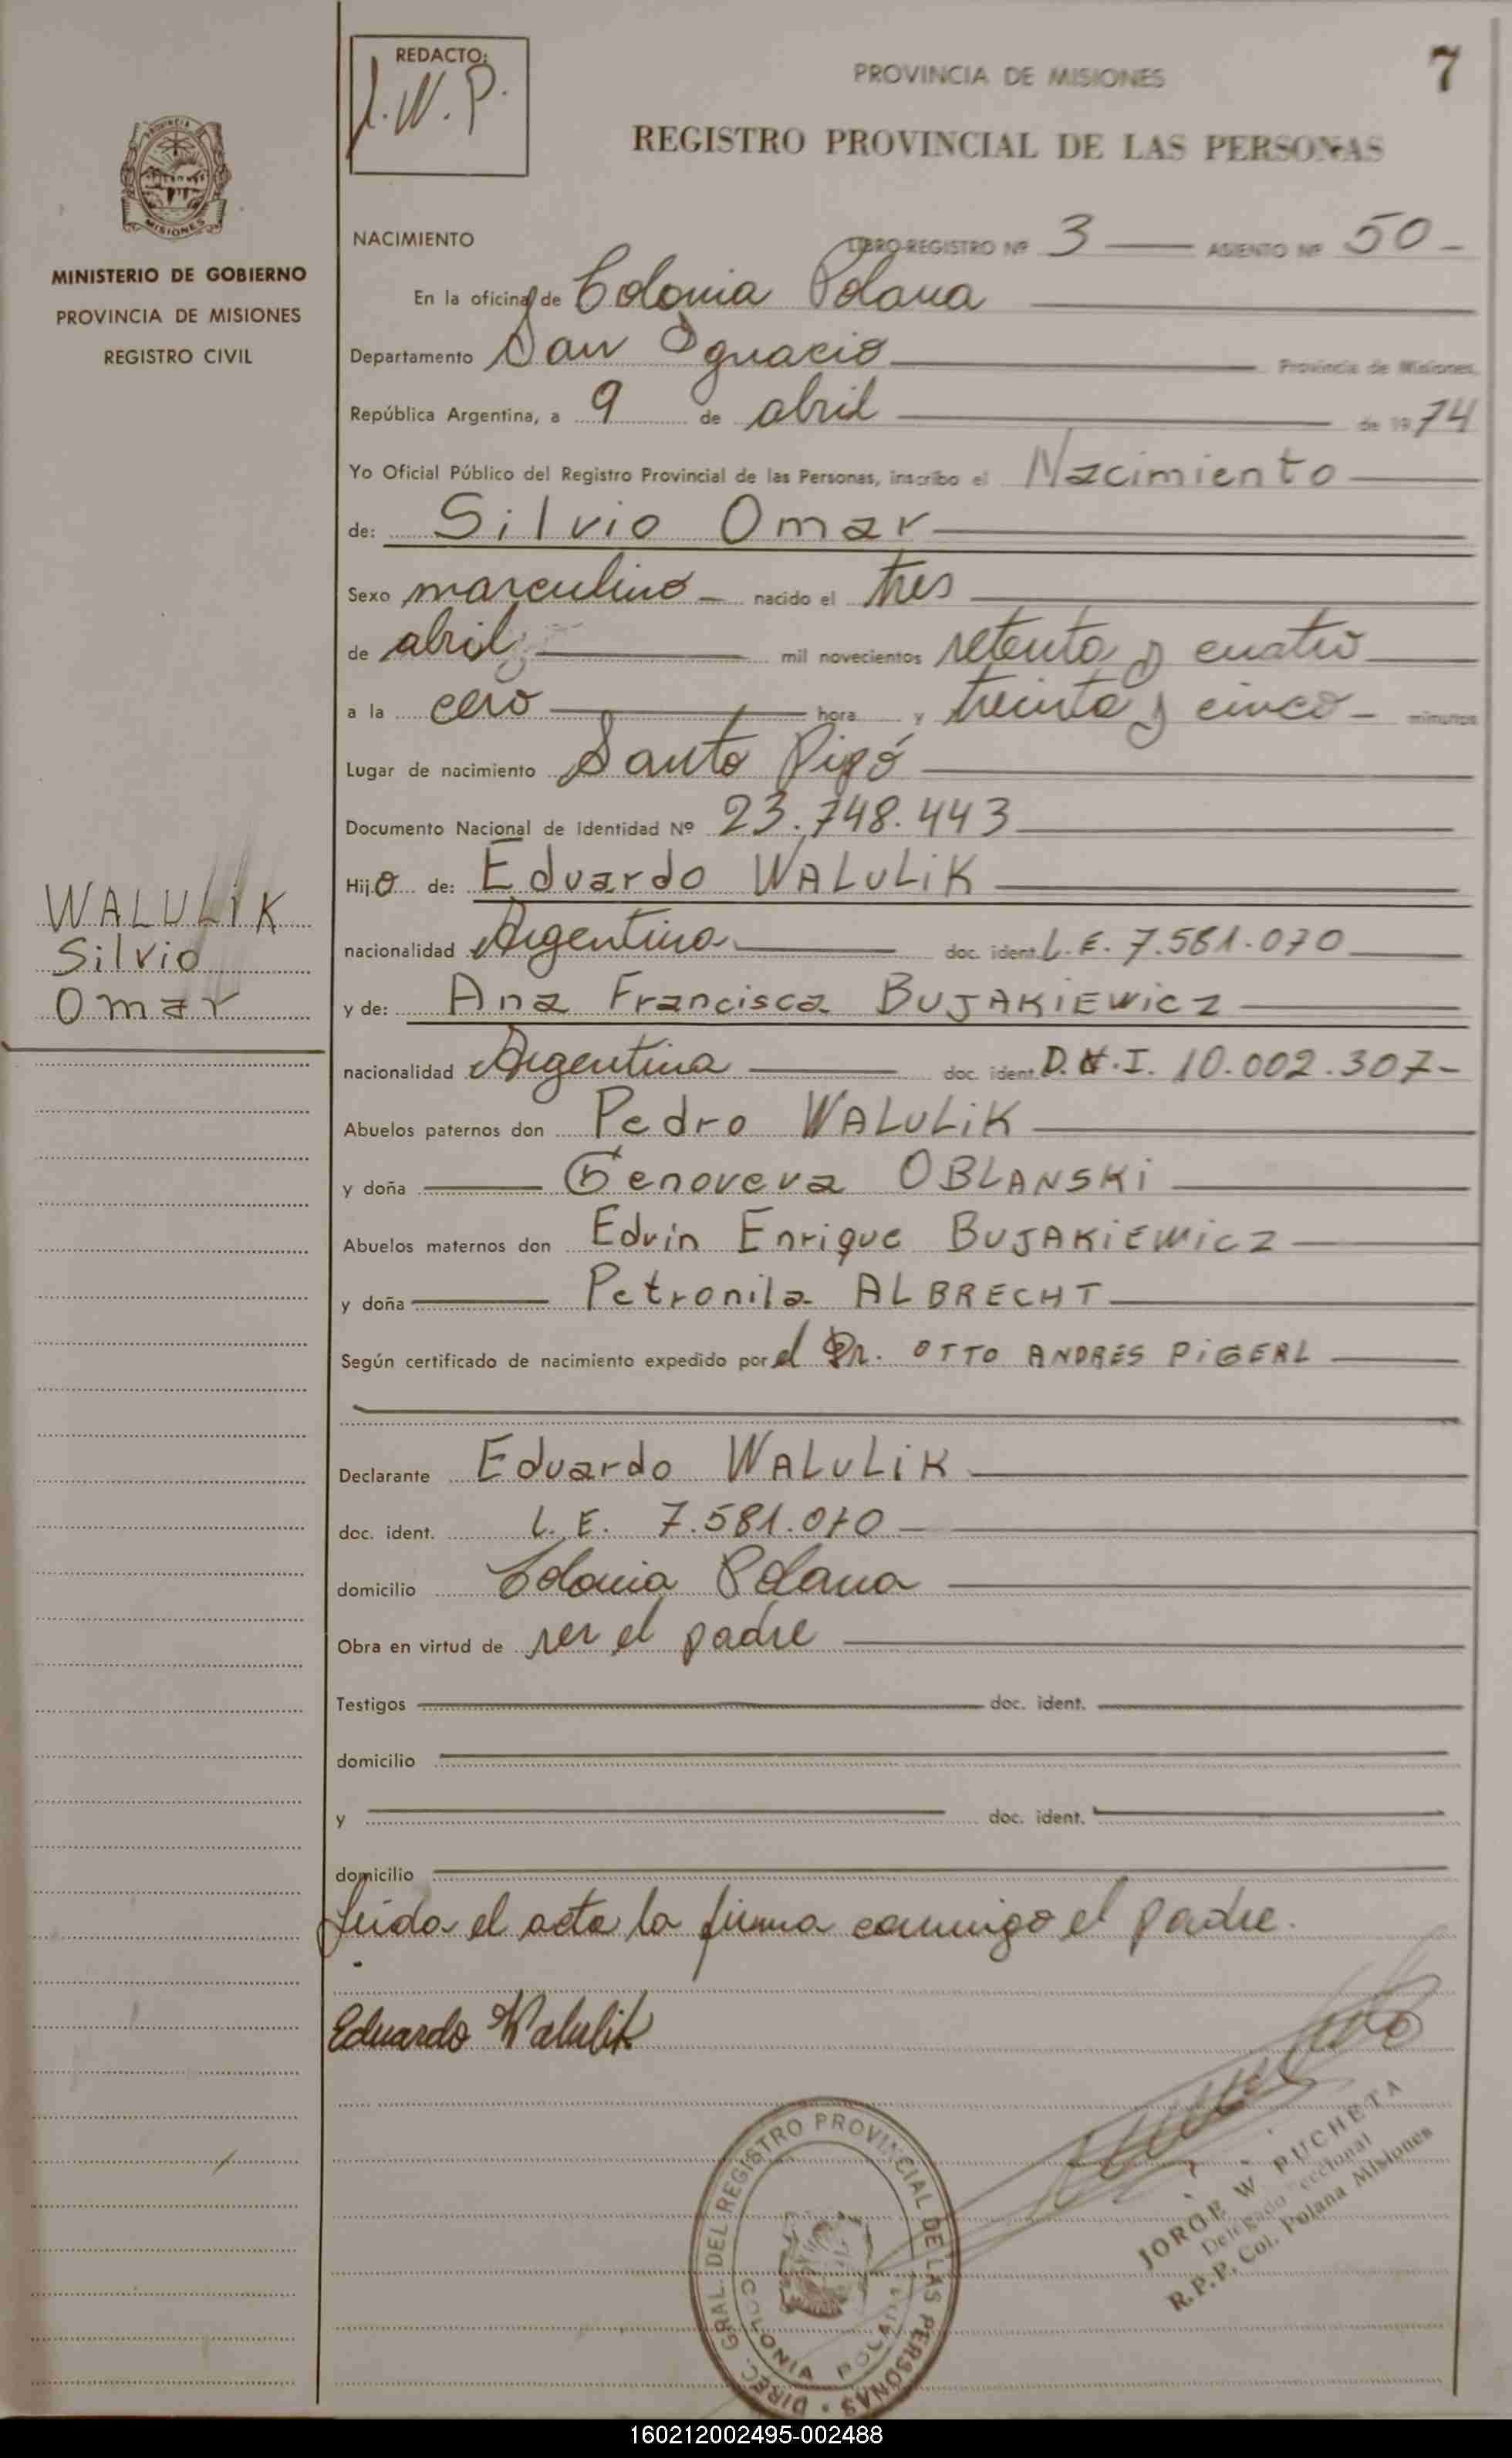 REDACTO:
J.W.P.
PROVINCIA DE MISIONES
7
REGISTRO PROVINCIAL DE LAS PERSONAS
PROVINCIA
MISIONES
MINISTERIO DE GOBIERNO
PROVINCIA DE MISIONES
REGISTRO CIVIL
NACIMIENTO LIBRO-REGISTRO Nº 3 ASIENTO Nº 50
En la oficina de Colonia Polana
Departamento San Ignacio Provincia de Misiones,
República Argentina, a 9 de abril de 1974
Yo Oficial Público del Registro Provincial de las Personas, inscribo el Nacimiento
de: Silvio Omar
Sexo masculino nacido el tres
de abril mil novecientos setenta y cuatro
a la cero hora y treinta y cinco minutos
Lugar de nacimiento Santo Pipó
Documento Nacional de Identidad Nº 23.748.443
Hijo de: Eduardo WALULIK
nacionalidad Argentina doc. ident. L.E. 7.581.070
y de: Ana Francisca BUJAKIEWICZ
nacionalidad Argentina doc. ident. D.N.I. 10.002.307-
Abuelos paternos don Pedro WALULIK
y doña Genoveva OBLANSKI
Abuelos maternos don Edvin Enrique BUJAKIEWICZ
y doña Petronila ALBRECHT
Según certificado de nacimiento expedido por el Dr. OTTO ANDRES PIGERL
Declarante Eduardo WALULIK
doc. ident. L.E. 7.581.070
domicilio Colonia Polana
Obra en virtud de ser el padre
Testigos doc. ident.
domicilio
y doc. ident.
domicilio
Leída el acta la firma conmigo el padre.
Eduardo Walulik
WALULIK
Silvio
Omar
DIREC. GRAL. DEL REGISTRO PROVINCIAL DE LAS PERSONAS
COLONIA POLANA
JORGE W PUCHETA
Delegado Seccional
R.P.P. Col. Polana Misiones
160212002495-002488